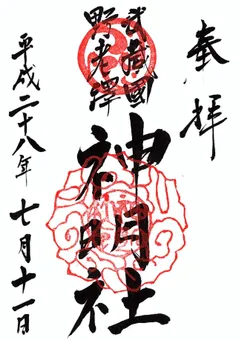 奉拝
武蔵國
野老澤
神明社
平成二十八年七月十一日